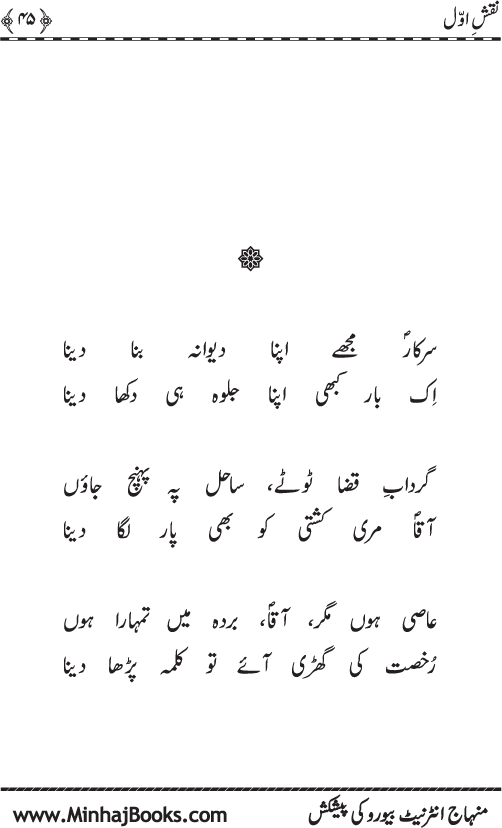 نقشِ اوّل
﴿۴۵﴾
سرکارؐ مجھے اپنا دیوانہ بنا دینا
اِک بار کبھی اپنا جلوہ ہی دکھا دینا
گردابِ قضا ٹوٹے، ساحل پہ پہنچ جاؤں
آقاؐ مری کشتی کو بھی پار لگا دینا
عاصی ہوں مگر، آقاؐ، بردہ میں تمہارا ہوں
رُخصت کی گھڑی آئے تو کلمہ پڑھا دینا
منہاج انٹرنیٹ بیورو کی پیشکش
www.MinhajBooks.com